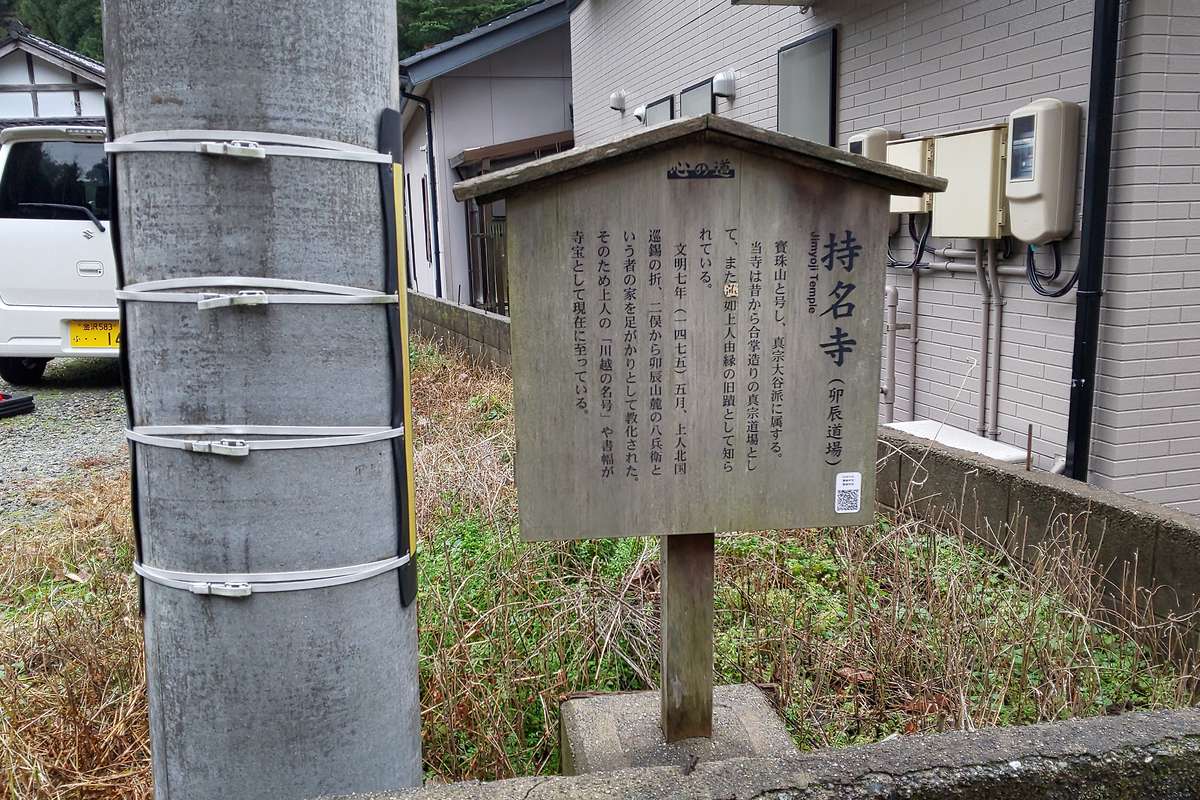 心の道
持名寺（卯辰道場）
Jimyoji Temple
寳珠山と号し、真宗大谷派に属する。
当寺は昔から合掌造りの真宗道場とし
て、また蓮如上人由縁の旧蹟として知ら
れている。
文明七年（一四七五）五月、上人北国
巡錫の折、二俣から卯辰山麓の八兵衛と
いう者の家を足がかりとして教化された。
そのため上人の「川越の名号」や書幅が
寺宝として現在に至っている。
金沢583